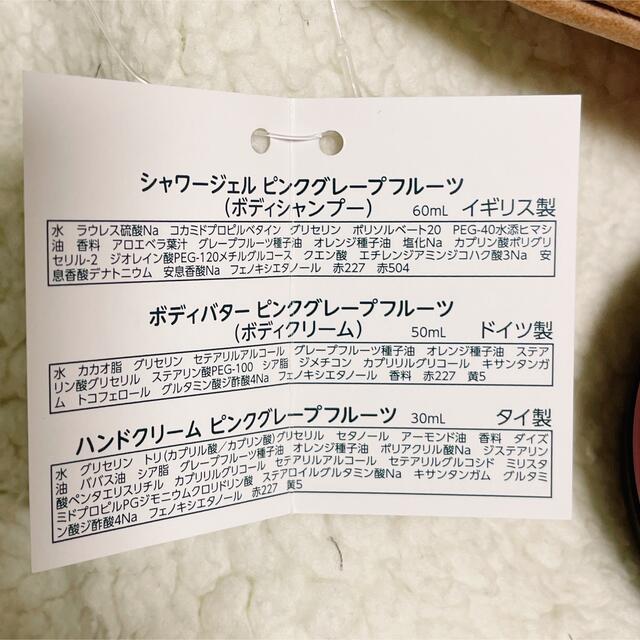 シャワージェル ピンクグレープフルーツ
（ボディシャンプー） 60mL イギリス製
水 ラウレス硫酸Na コカミドプロピルベタイン グリセリン ポリソルベート20 PEG-40水添ヒマシ
油 香料 アロエベラ葉汁 グレープフルーツ種子油 オレンジ種子油 塩化Na カプリン酸ポリグリ
セリル-2 ジオレイン酸PEG-120メチルグルコース クエン酸 エチレンジアミンジコハク酸3Na 安
息香酸デナトニウム 安息香酸Na フェノキシエタノール 赤227 赤504
ボディバター ピンクグレープフルーツ
（ボディクリーム） 50mL ドイツ製
水 カカオ脂 グリセリン セテアリルアルコール グレープフルーツ種子油 オレンジ種子油 ステア
リン酸グリセリル ステアリン酸PEG-100 シア脂 ジメチコン カプリリルグリコール キサンタンガ
ム トコフェロール グルタミン酸ジ酢酸4Na フェノキシエタノール 香料 赤227 黄5
ハンドクリーム ピンクグレープフルーツ 30mL タイ製
水 グリセリン トリ（カプリル酸／カプリン酸）グリセリル セタノール アーモンド油 香料 ダイズ
油 ババス油 シア脂 グレープフルーツ種子油 オレンジ種子油 ポリアクリル酸Na ジステアリン
酸ペンタエリスリチル カプリリルグリコール セテアリルアルコール セテアリルグルコシド ミリスタ
ミドプロピルPGジモニウムクロリドリン酸 ステアロイルグルタミン酸Na キサンタンガム グルタミ
ン酸ジ酢酸4Na フェノキシエタノール 赤227 黄5